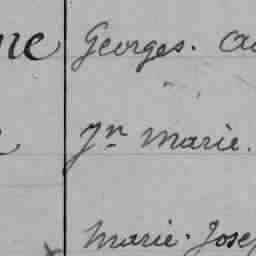 Georges.
Jn Marie.
Marie. Josep